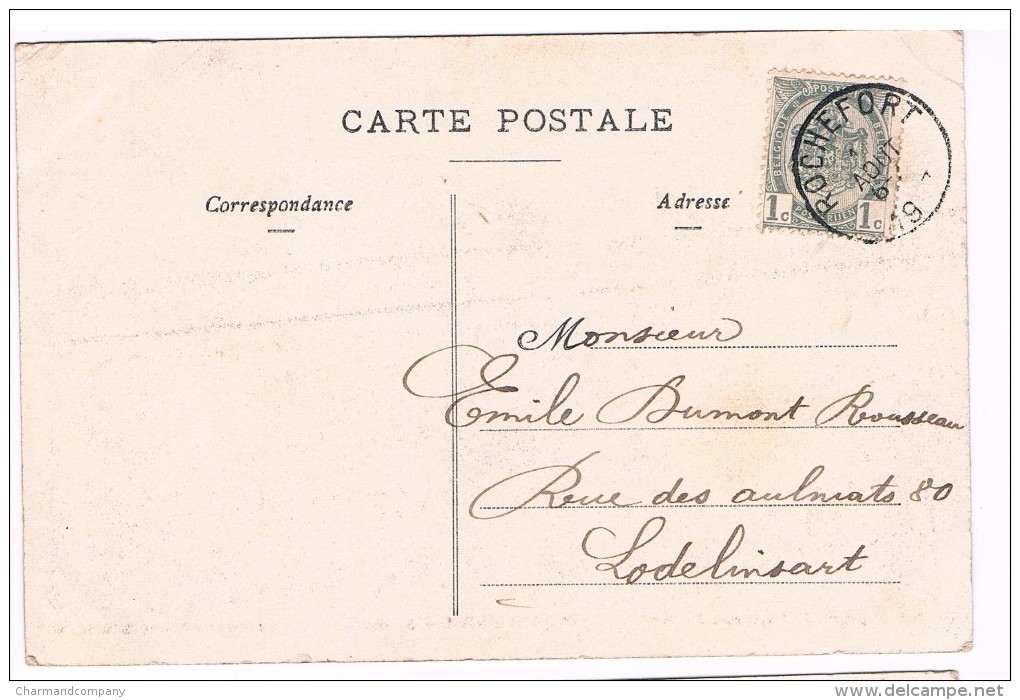 CARTE POSTALE
Correspondance
Adresse
BELGIQUE POSTES BELGIË
POSTERIJEN
1c 1c
ROCHEFORT
1
AOUT
6-
19 7
Monsieur
Emile Dumont Rousseau
Rue des aulniats 80
Lodelinsart
Charmandcompany
www.delcampe.net